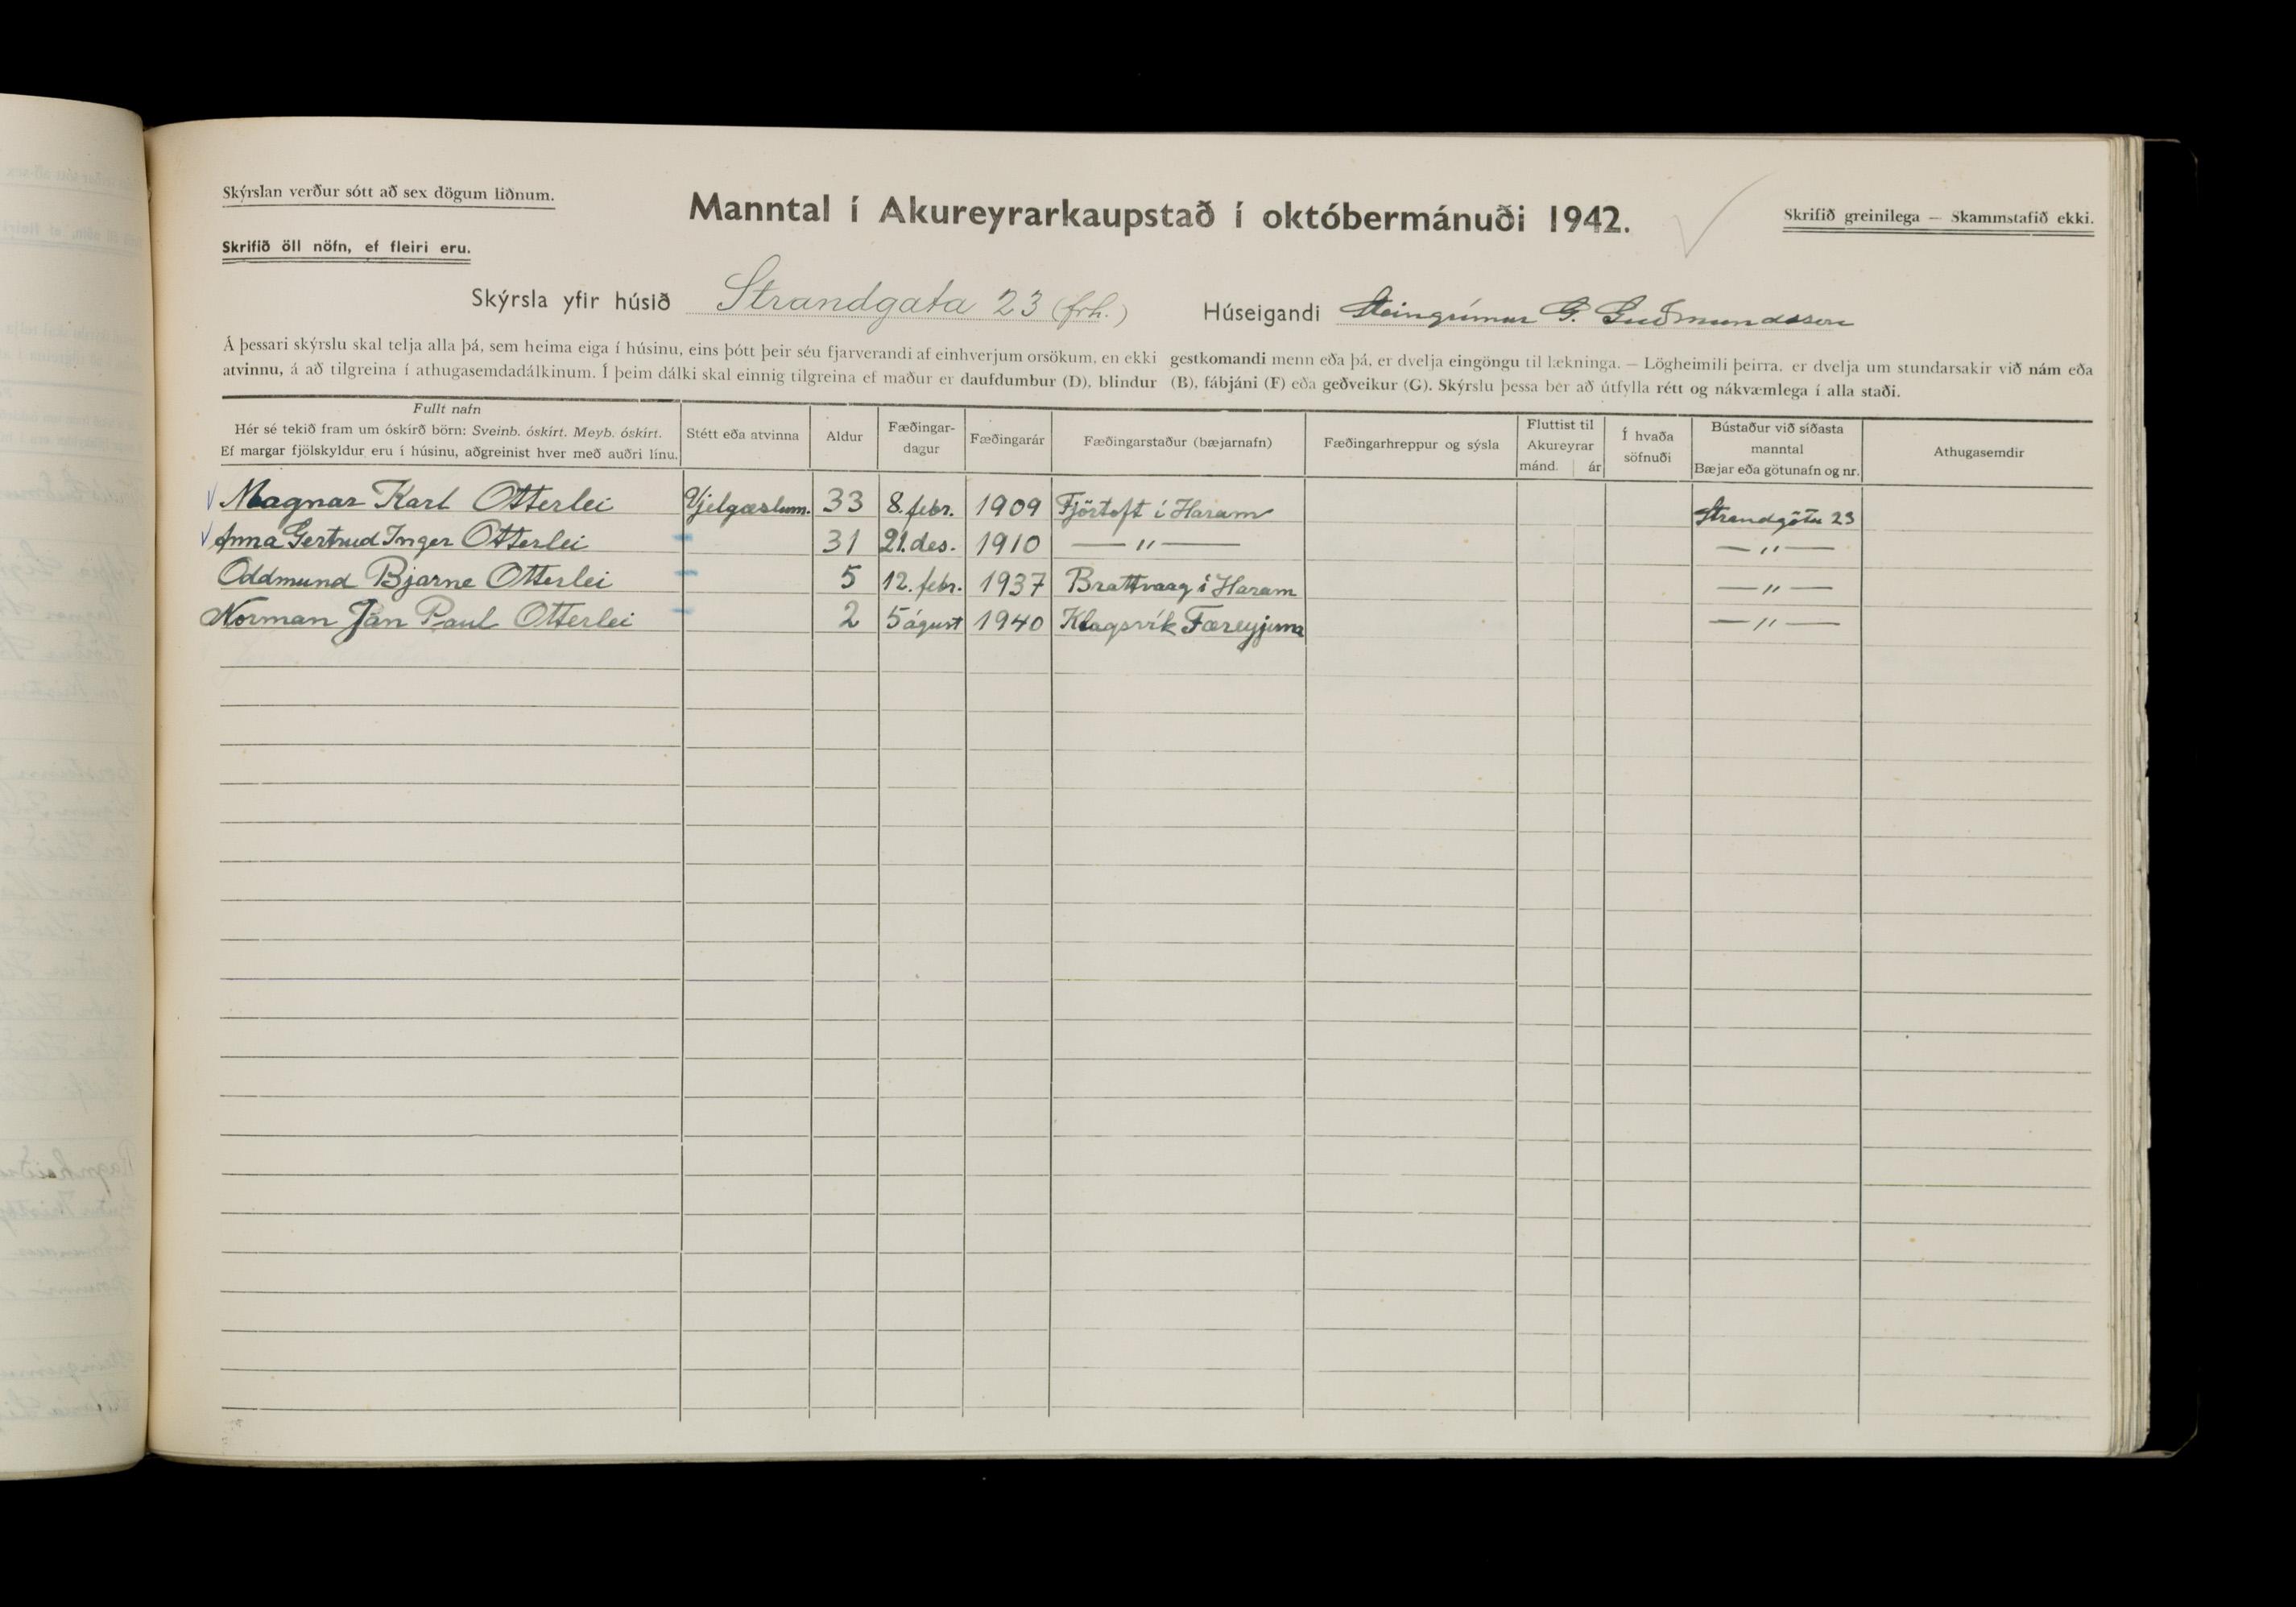 Skýrslan verður sótt að sex dögum liðnum.
Manntal í Akureyrarkaupstað í októbermánuði 1942.
Skrifið greinilega — Skammstafið ekki.
Skrifið öll nöfn, ef fleiri eru.
Skýrsla yfir húsið Strandgata 23 (frh.) Húseigandi Steingrímur G. Guðmundsson
Á þessari skýrslu skal telja alla þá, sem heima eiga í húsinu, eins þótt þeir séu fjarverandi af einhverjum orsökum, en ekki gestkomandi menn eða þá, er dvelja eingöngu til lækninga. — Lögheimili þeirra. er dvelja um stundarsakir við nám eða
atvinnu, á að tilgreina í athugasemdadálkinum. Í þeim dálki skal einnig tilgreina ef maður er daufdumbur (D), blindur (B), fábjáni (F) eða geðveikur (G). Skýrslu þessa ber að útfylla rétt og nákvæmlega í alla staði.
Fullt nafn
Hér sé tekið fram um óskírð börn: Sveinb. óskírt. Meyb. óskírt.
Ef margar fjölskyldur eru í húsinu, aðgreinist hver með auðri línu.
Stétt eða atvinna
Aldur
Fæðingar-
dagur
Fæðingarár
Fæðingarstaður (bæjarnafn)
Fæðingarhreppur og sýsla
Fluttist til
Akureyrar
mánd. ár
Í hvaða
söfnuði
Bústaður við síðasta
manntal
Bæjar eða götunafn og nr.
Athugasemdir
Magnar Karl Otterlei Vjelgæslum. 33 8. febr. 1909 Fjörtoft í Haram Strandgötu 23
Anna Gertrud Inger Otterlei 31 21. des. 1910 — " — — " —
Oddmund Bjarne Otterlei 5 12. febr. 1937 Brattvaag í Haram — " —
Norman Jan Paul Otterlei 2 5 ágúst 1940 Klagsvík Færeyjum — " —